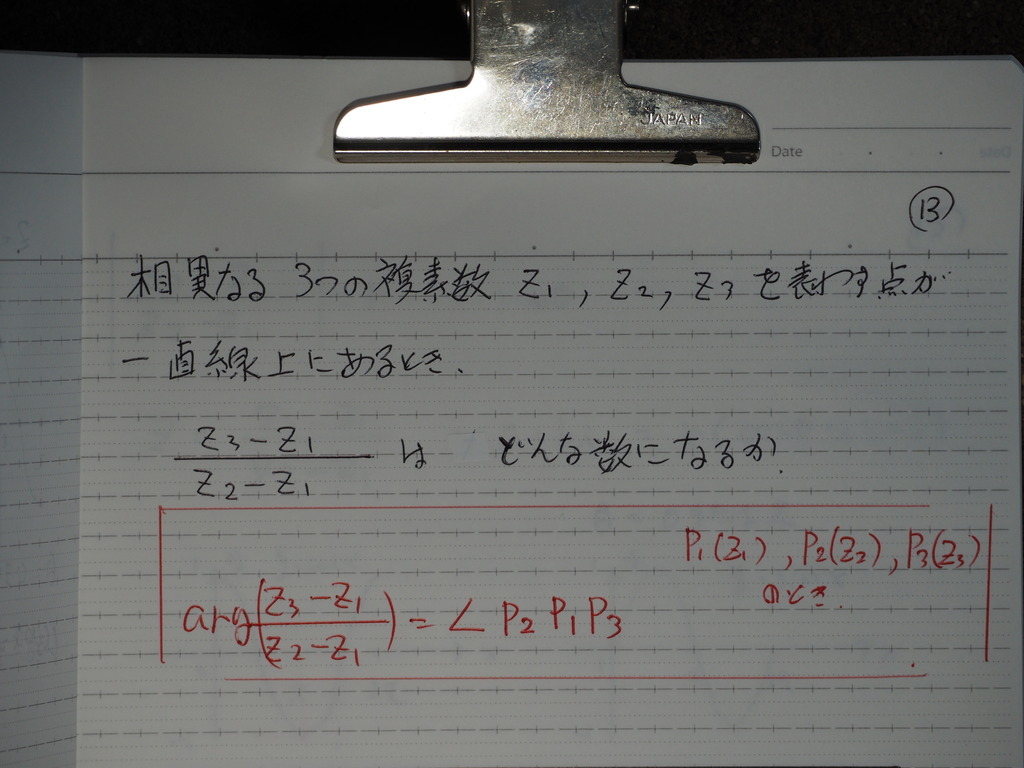 JAPAN
Date
13
相異なる 3つの複素数 Z1, Z2, Z3 を表わす点が
一直線上にあるとき.
(Z3-Z1)/(Z2-Z1) は どんな数になるか.
P1(Z1), P2(Z2), P3(Z3)
のとき.
arg((Z3-Z1)/(Z2-Z1)) = ∠P2P1P3